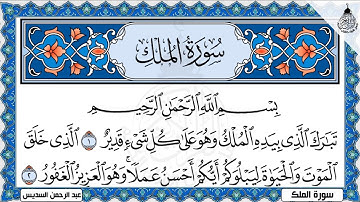 سُورَةُ المُلْكِ
بِسْمِ ٱللَّهِ ٱلرَّحْمَٰنِ ٱلرَّحِيمِ
تَبَٰرَكَ ٱلَّذِى بِيَدِهِ ٱلْمُلْكُ وَهُوَ عَلَىٰ كُلِّ شَىْءٍ قَدِيرٌ ١ ٱلَّذِى خَلَقَ
ٱلْمَوْتَ وَٱلْحَيَوٰةَ لِيَبْلُوَكُمْ أَيُّكُمْ أَحْسَنُ عَمَلًا ۚ وَهُوَ ٱلْعَزِيزُ ٱلْغَفُورُ ٢
سورة الملك
عبد الرحمن السديس